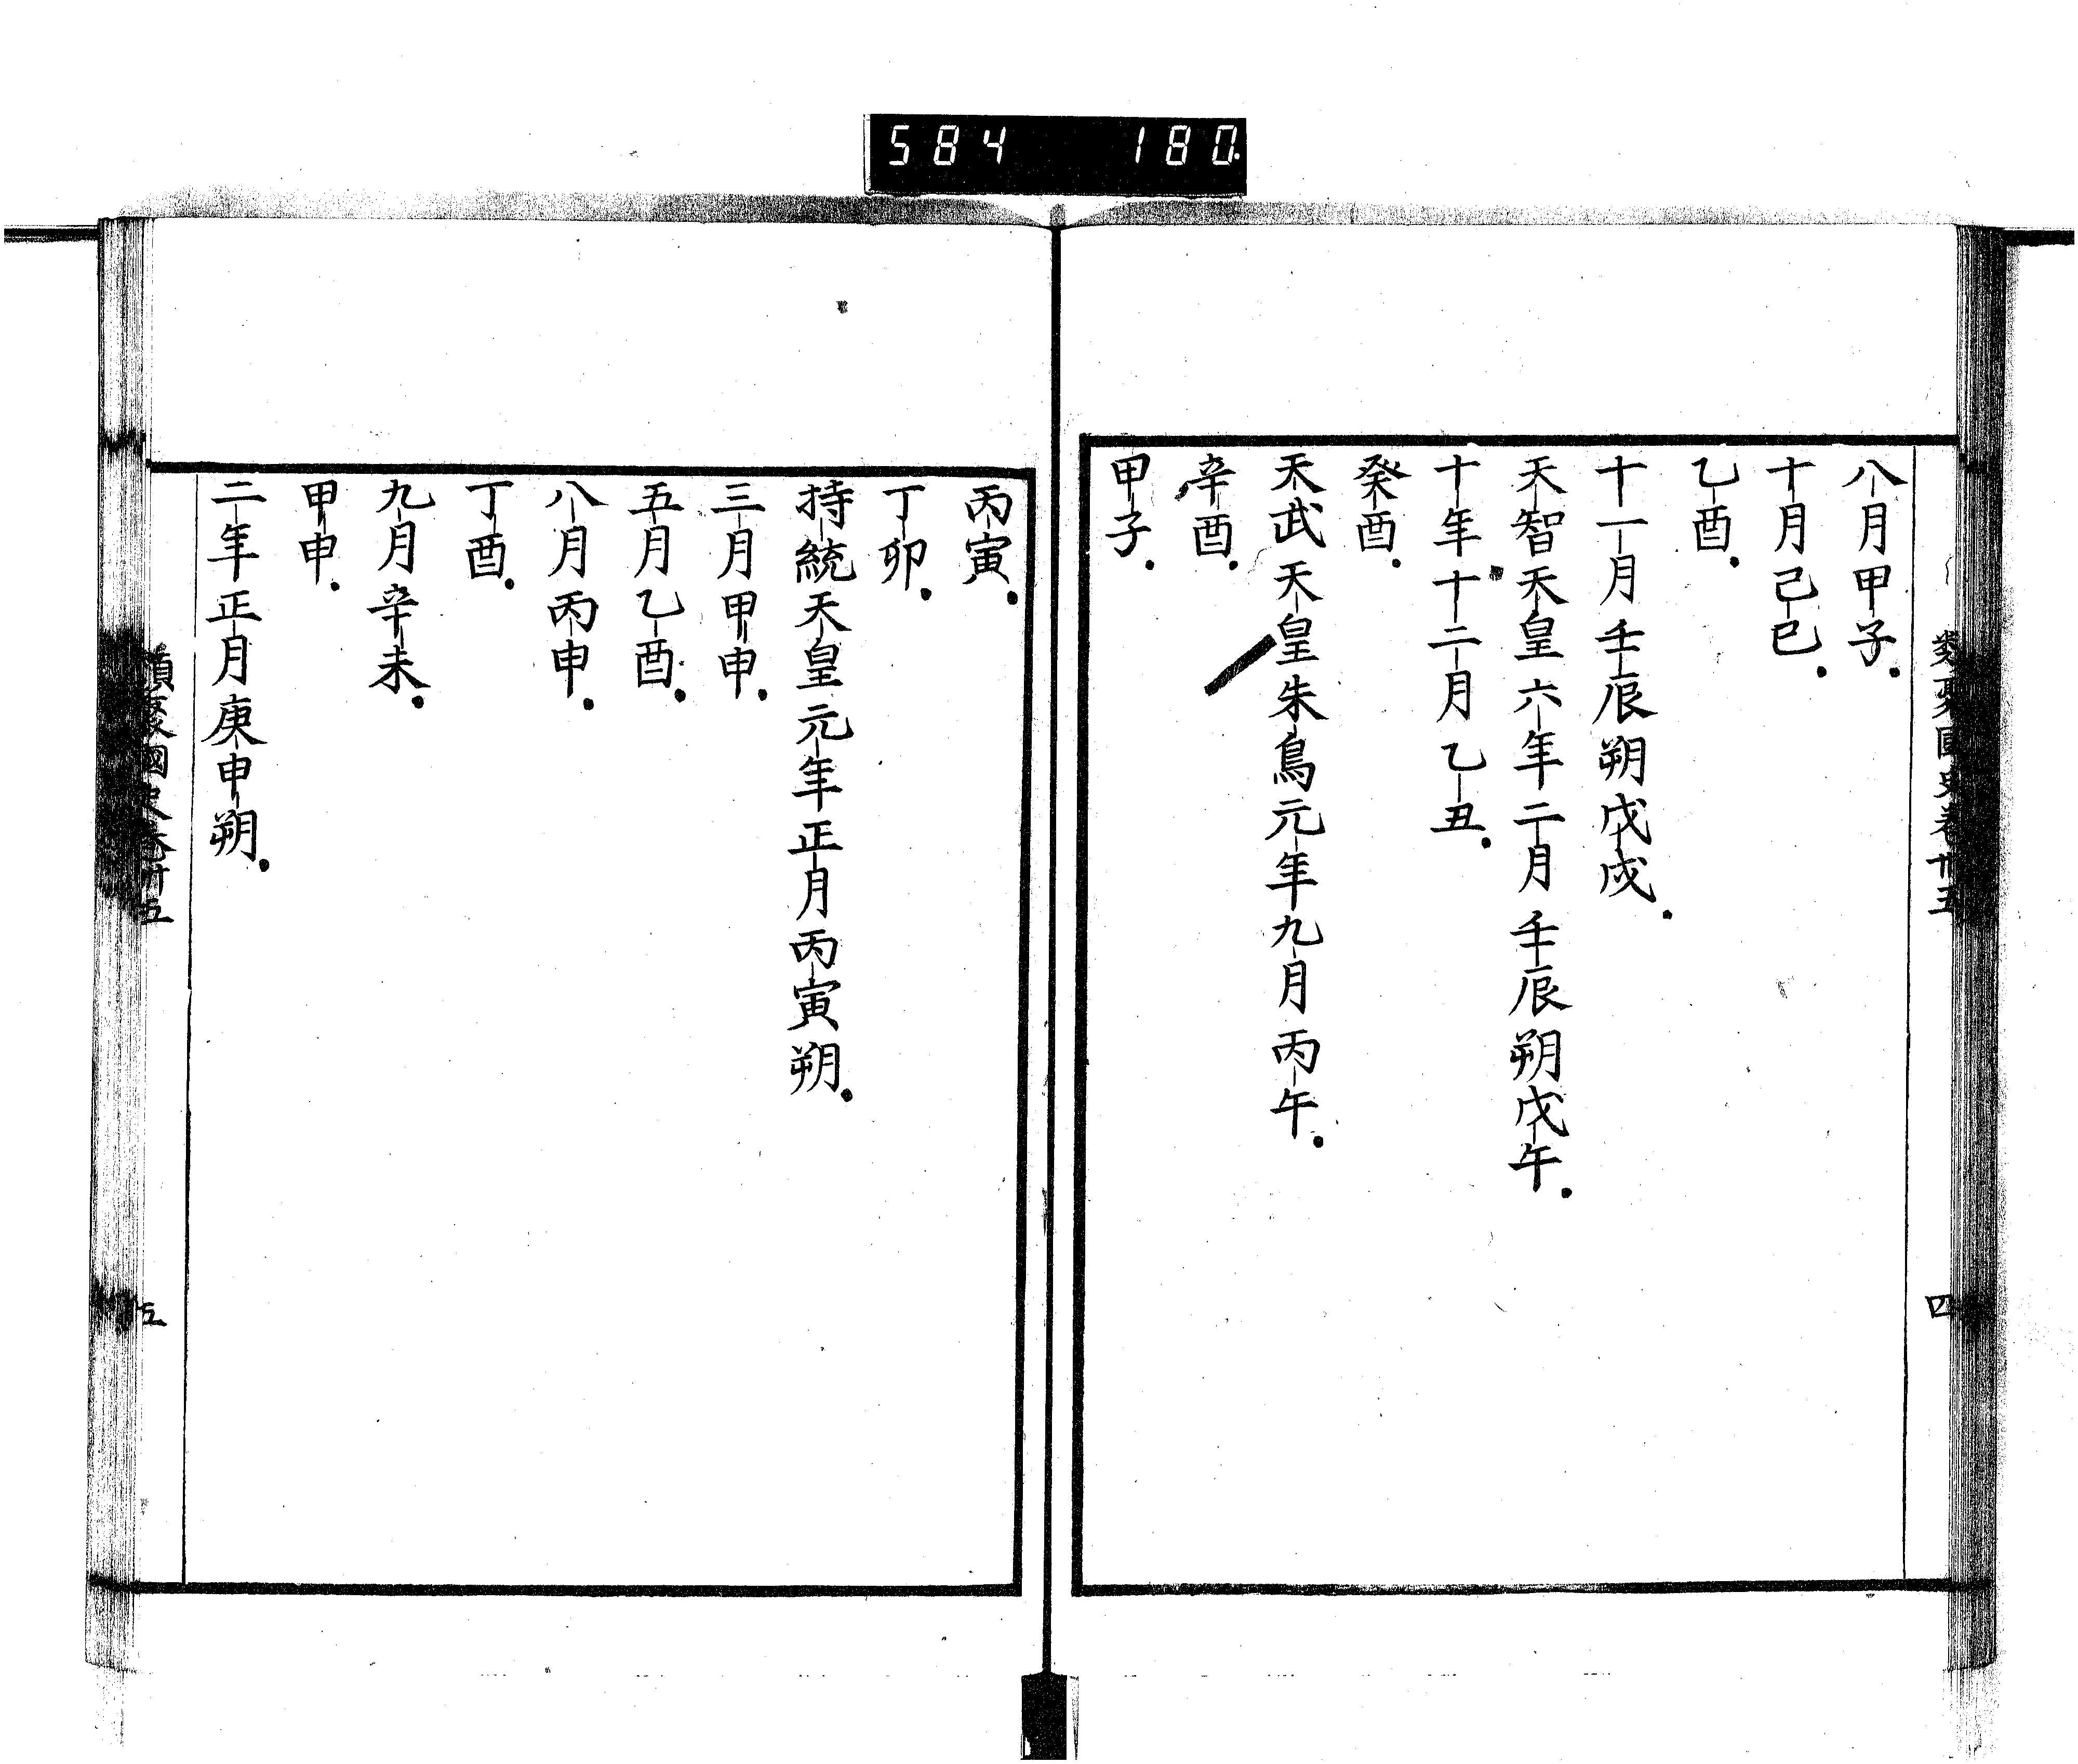 584 180
類聚國史卷卅五 四
八月甲子.
十月己巳.
乙酉.
十一月壬辰朔戊戌.
天智天皇六年二月壬辰朔戊午.
十年十二月乙丑.
癸酉.
天武天皇朱鳥元年九月丙午.
辛酉.
甲子.
丙寅.
丁卯.
持統天皇元年正月丙寅朔.
三月甲申.
五月乙酉.
八月丙申.
丁酉.
九月辛未.
甲申.
二年正月庚申朔.
類聚國史卷卅五 五